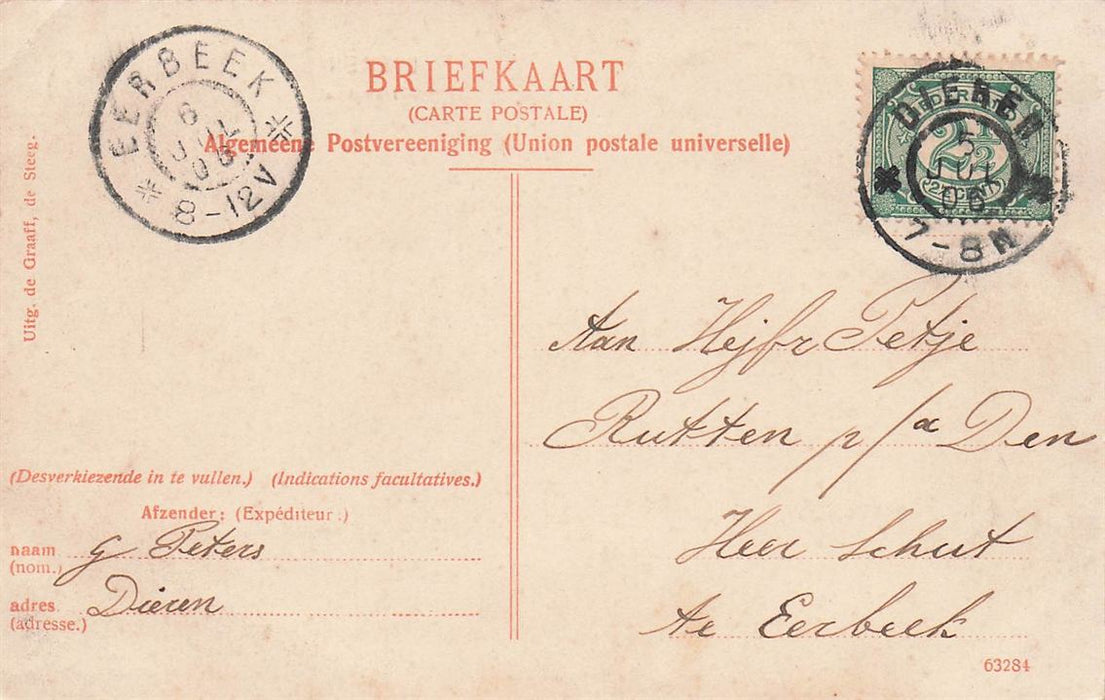 BRIEFKAART
(CARTE POSTALE)
Algemeene Postvereeniging (Union postale universelle)
EERBEEK
6
JUL
06
8-12V
DIEREN
5
JUL
06
7-8N
NEDERLAND
2½
(2½ CENT)
Uitg. de Graaff, de Steeg.
Aan Hejfr Petje
Rutten p/a Den
Heer Schut
te Eerbeek
(Desverkiezende in te vullen.) (Indications facultatives.)
Afzender: (Expéditeur:)
naam G Peters
(nom.)
adres. Dieren
(adresse.)
63284